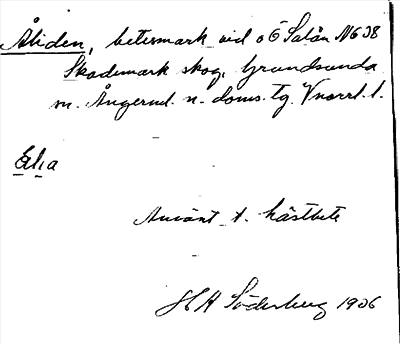 Åliden, betesmark vid o Ö Salån N 6 38
Skademark skog, Grundsunda
m. Ångerml. n. doms. tg. Vnorrl. l.
Använt t. hästbete
H A Söderberg 1906